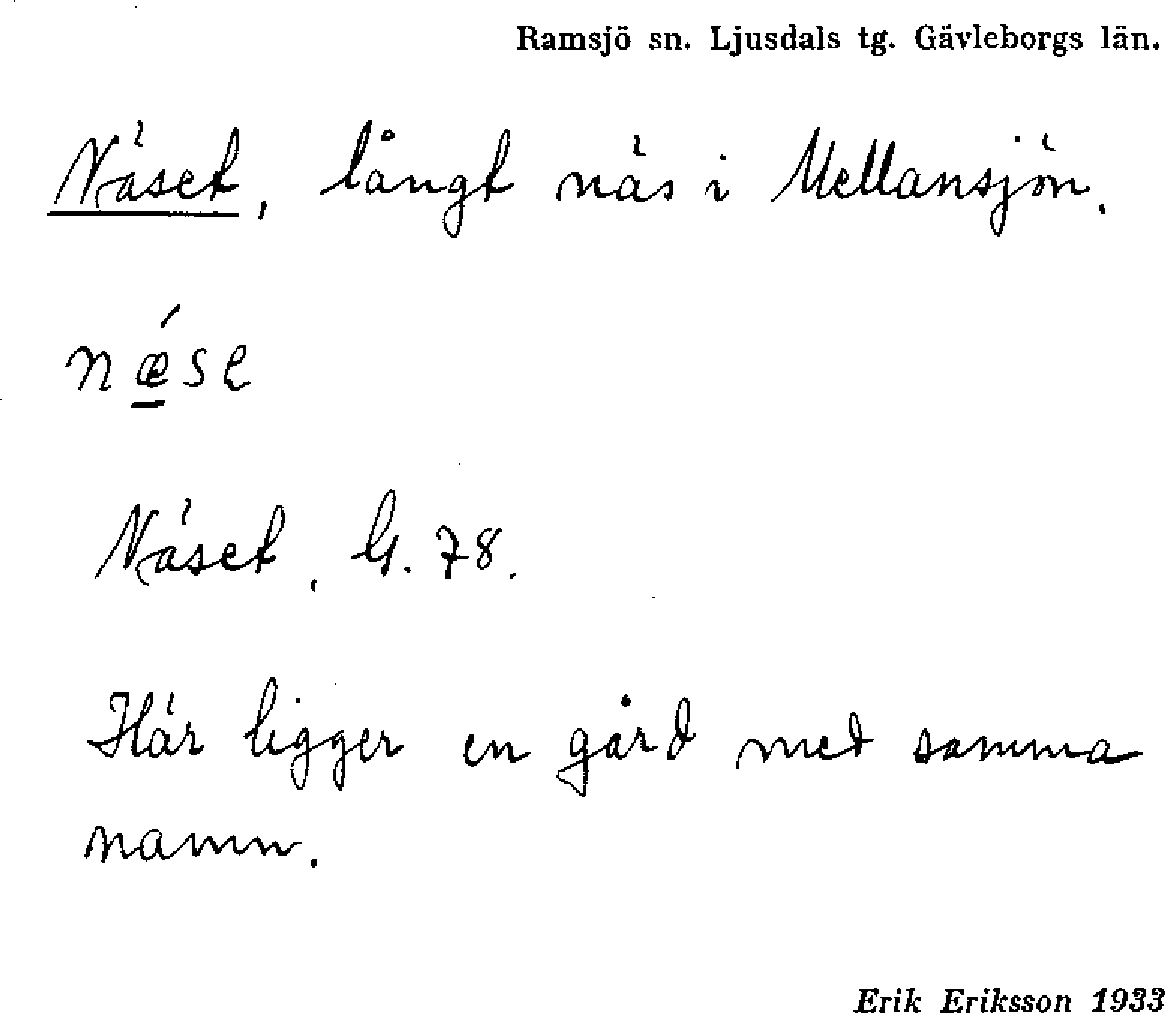 Ramsjö sn. Ljusdals tg. Gävleborgs län.
Näset, långt näs i Mellansjön.
nǽ̲se
Näset, G. 78.
Här ligger en gård med samma
namn.
Erik Eriksson 1933